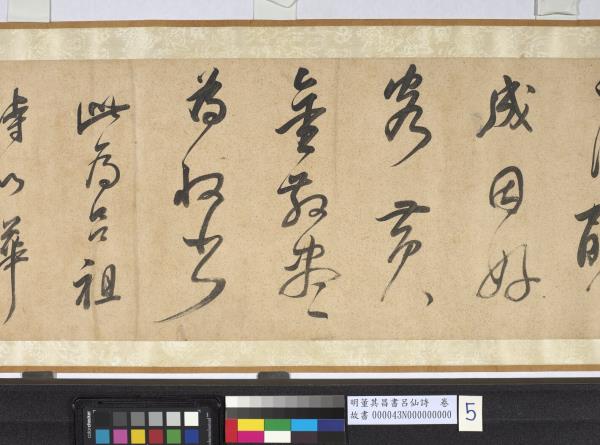 成因好
客黃
金散盡
為收書
此為呂祖
以華
明董其昌書呂仙詩 卷
故書 000043N000000000
5